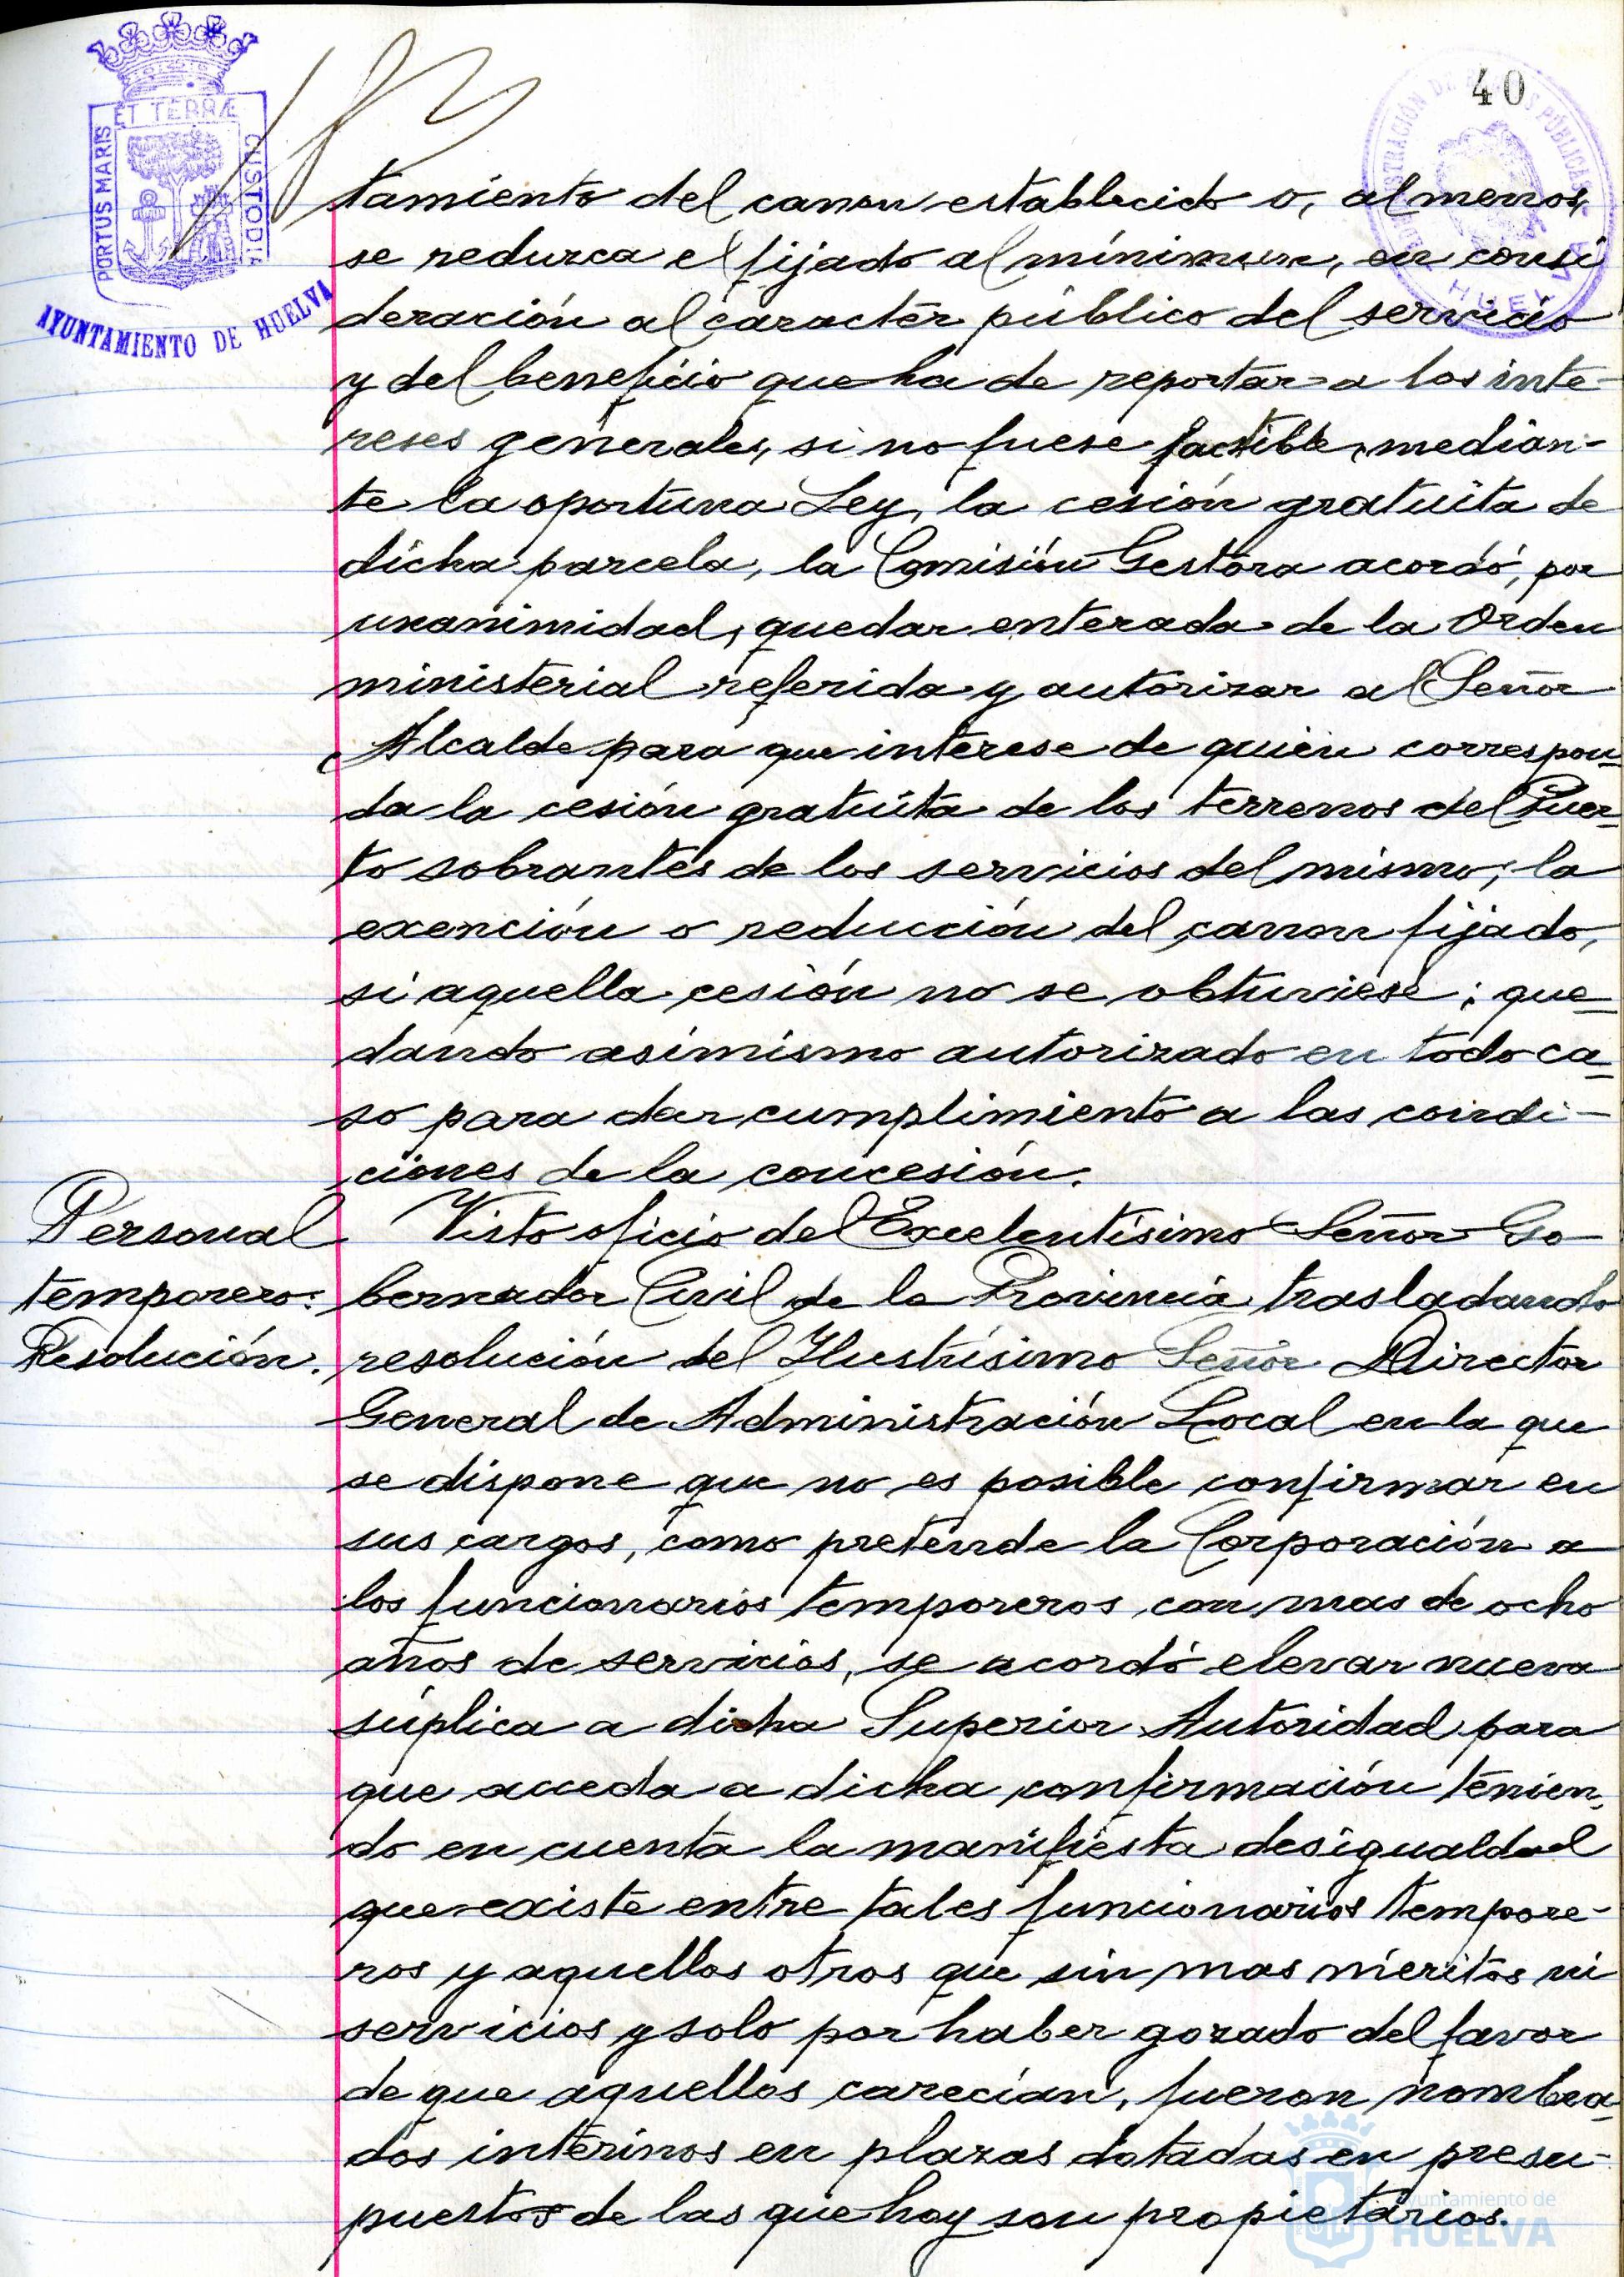 40
ET TERRÆ
PORTUS MARIS
CUSTODIA
AYUNTAMIENTO DE HUELVA
HUELVA
tamiento del canon establecido o, al menos,
se reduzca el fijado al mínimum, en consi
deración al carácter público del servicio
y del beneficio que ha de reportar a los inte-
reses generales, si no fuese factible, median-
te la oportuna Ley, la cesión gratuita de
dicha parcela, la Comisión Gestora acordó, por
unanimidad, quedar enterada de la Orden
ministerial referida y autorizar al Señor
Alcalde para que interese de quien correspon-
da la cesión gratuita de los terrenos del Puer-
to sobrantes de los servicios del mismo; la
exención o reducción del canon fijado,
si aquella cesión no se obtuviese; que-
dando asimismo autorizado en todo ca-
so para dar cumplimiento a las condi-
ciones de la concesión.
Personal
temporero:
Resolución.
Visto oficio del Excelentísimo Señor Go-
bernador Civil de la Provincia trasladando
resolución del Ilustrísimo Señor Director
General de Administración Local en la que
se dispone que no es posible confirmar en
sus cargos, como pretende la Corporación a
los funcionarios temporeros con mas de ocho
años de servicios, se acordó elevar nueva
súplica a dicha Superior Autoridad para
que acceda a dicha confirmación tenien-
do en cuenta la manifiesta desigualdad
que existe entre tales funcionarios tempore-
ros y aquellos otros que sin mas méritos ni
servicios y solo por haber gozado del favor
de que aquellos carecían, fueron nombra-
dos interinos en plazas dotadas en presu-
puestos de las que hoy son propietarios.
Ayuntamiento de
HUELVA